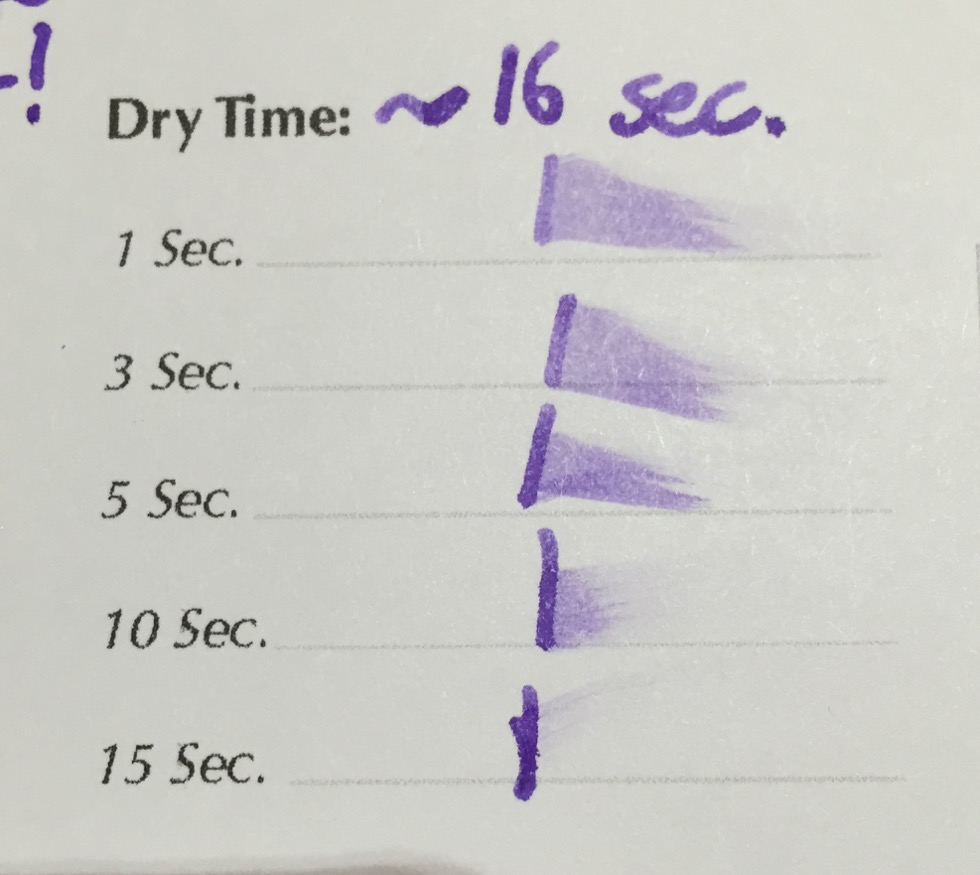 !
Dry Time: ~ 16 sec.
1 Sec.
3 Sec.
5 Sec.
10 Sec.
15 Sec.